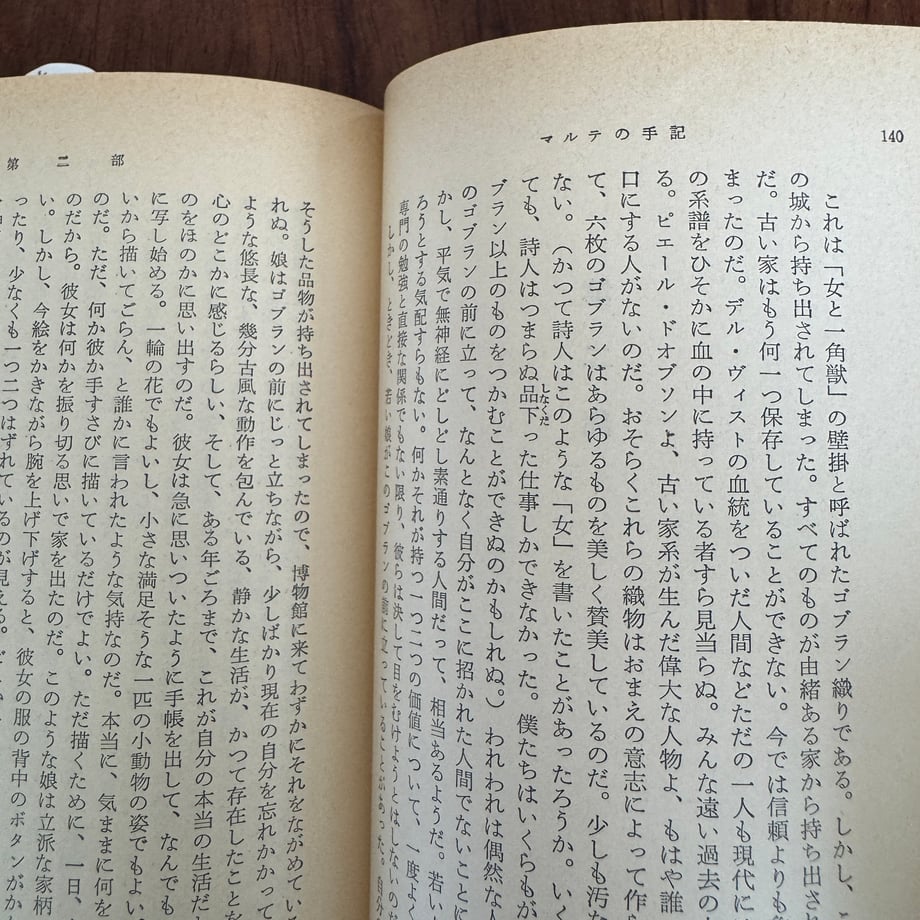 140
マルテの手記
これは「女と一角獣」の壁掛と呼ばれたゴブラン織りである。しかし、
の城から持ち出されてしまった。すべてのものが由緒ある家から持ち出さ
だ。古い家はもう何一つ保存していることができない。今では信頼よりも
まったのだ。デル・ヴィストの血統をついだ人間などただの一人も現代に
の系譜をひそかに血の中に持っている者すら見当らぬ。みんな遠い過去の
る。ピエール・ドオブソンよ、古い家系が生んだ偉大な人物よ、もはや誰
口にする人がないのだ。おそらくこれらの織物はおまえの意志によって作
て、六枚のゴブランはあらゆるものを美しく賛美しているのだ。少しも汚
ない。（かつて詩人はこのような「女」を書いたことがあったろうか。いく
ても、詩人はつまらぬ品下しなくだった仕事しかできなかった。僕たちはいくらもが
ブラン以上のものをつかむことができぬのかもしれぬ。）われわれは偶然な
のゴブランの前に立って、なんとなく自分がここに招かれた人間でないことに
かし、平気で無神経にどしどし素通りする人間だって、相当あるようだ。若い
ろうとする気配すらもない。何かそれが持つ一つ二つの価値について、一度よく
専門の勉強と直接な関係でもない限り、彼らは決して目をむけようとはしないのだ
しかし、ときどき、若い娘がこのゴブランの前に立っていることがあった。
第二部
そうした品物が持ち出されてしまったので、博物館に来てわずかにそれをながめてい
れぬ。娘はゴブランの前にじっと立ちながら、少しばかり現在の自分を忘れかかって
ような悠長な、幾分古風な動作を包んでいる、静かな生活が、かつて存在したことを
心のどこかに感じるらしい、そして、ある年ごろまで、これが自分の本当の生活だ
のをほのかに思い出すのだ。彼女は急に思いついたように手帳を出して、なんでも
に写し始める。一輪の花でもよいし、小さな満足そうな一匹の小動物の姿でもよい。
いから描いてごらん、と誰かに言われたような気持なのだ。本当に、気ままに何を
のだ。ただ、何か彼か手すさびに描いているだけでよい。ただ描くために、一日、
のだから。彼女は何かを振り切る思いで家を出たのだ。このような娘は立派な家柄
い。しかし、今絵をかきながら腕を上げ下げすると、彼女の服の背中のボタンがか
ったり、少なくも一つ二つはずれているのが見える。